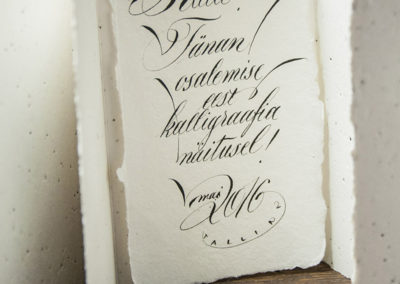 Tänan
osalemise
eest
kalligraafia
näitusel!
mai 2016
TALLINN